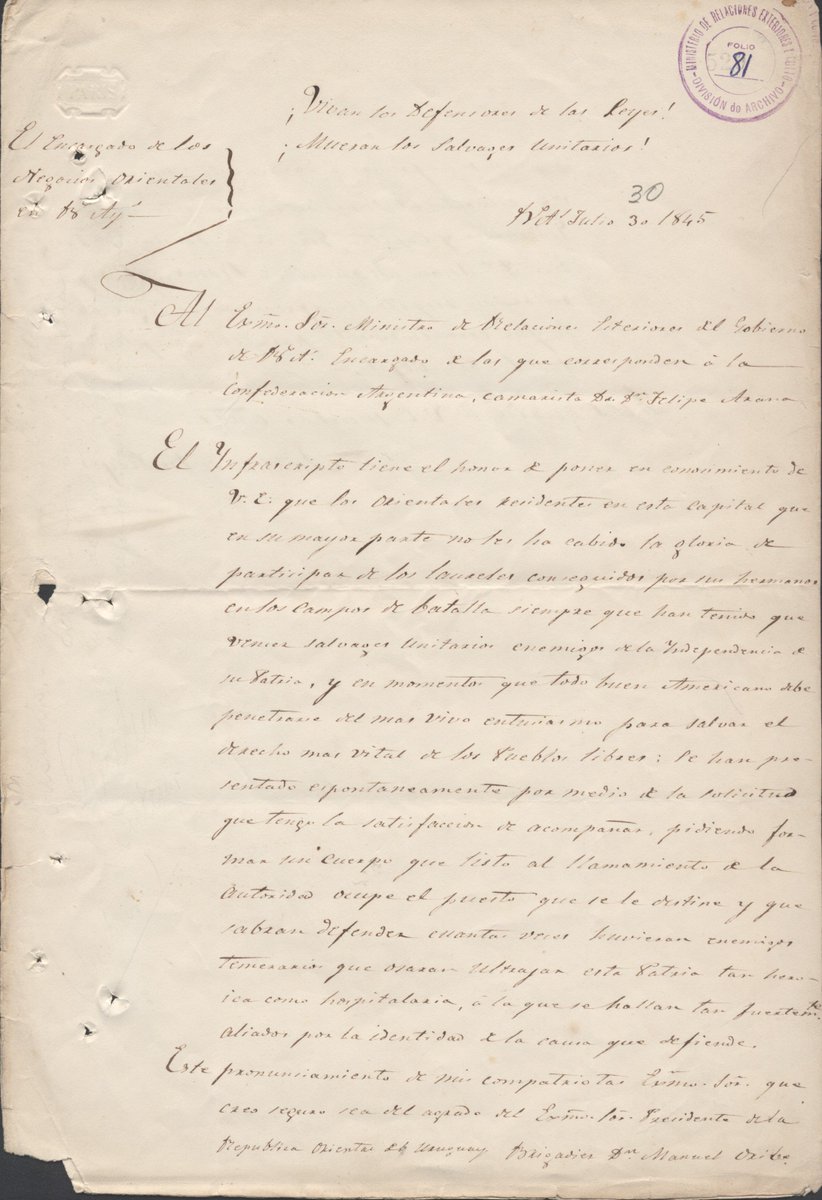 MINISTERIO DE RELACIONES EXTERIORES Y CULTO
DIVISIÓN de ARCHIVO
FOLIO
81
¡Vivan los Defensores de las Leyes!
¡Mueran los Salvages Unitarios!
El Encargado de los
Negocios Orientales
en Bs Ays
30
Bs As Julio 30 1845
Al Exmo. Sor. Ministro de Relaciones Esteriores del Gobierno
de Bs As. Encargado de las que corresponden á la
Confederacion Argentina, camarista Dr. Dn. Felipe Arana
El Infrascripto tiene el honor de poner en conocimiento de
V. E. que los Orientales residentes en esta capital que
en su mayor parte no les ha cabido la gloria de
participar de los laureles conseguidos por sus hermanos
en los campos de batalla siempre que han tenido que
vencer salvages unitarios enemigos de la Independencia de
su Patria, y en momentos que todo buen Americano debe
penetrarse del mas vivo entusiasmo para salvar el
derecho mas vital de los Pueblos libres; Se han pre-
sentado espontaneamente por medio de la solicitud
que tengo la satisfaccion de acompañar, pidiendo for-
mar un Cuerpo que listo al llamamiento de la
Autoridad ocupe el puesto que se le destine y que
sabran defender cuantas veces huvieran enemigos
temerarios que osaran ultrajar esta Patria tan hero-
ica como hospitalaria, á la que se hallan tan fuertemte
aliados por la identidad de la causa que defiende.
Este pronunciamiento de mis compatriotas Exmo. Sor. que
creo seguro sea del agrado del Exmo. Sor. Presidente de la
Republica Oriental del Uruguay Brigadier Dn Manuel Oribe